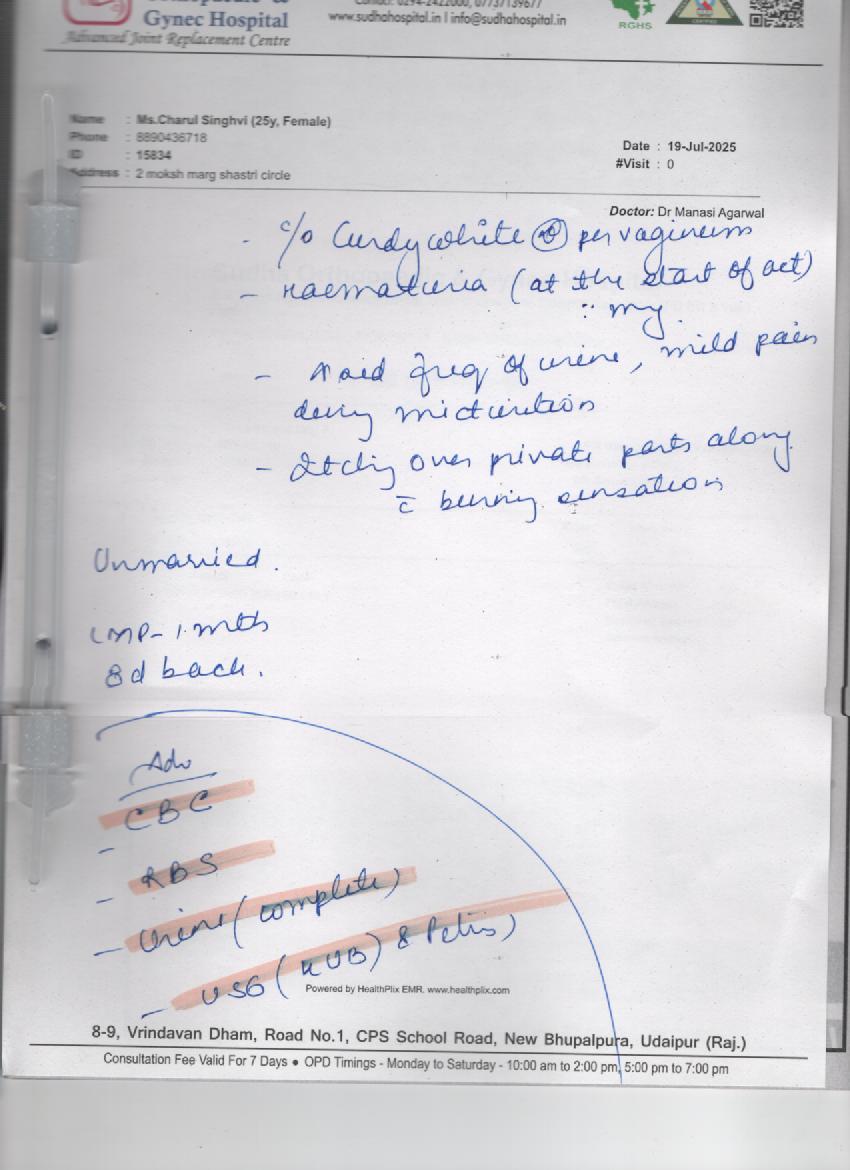 Gynec Hospital
Advanced Joint Replacement Centre
Contact: 0294-2422000, 07737139677
www.sudhahospital.in | info@sudhahospital.in
RGHS
Name : Ms.Charul Singhvi (25y, Female)
Phone : 8890436718
ID : 15834
Address : 2 moksh marg shastri circle
Date : 19-Jul-2025
#Visit : 0
Doctor: Dr Manasi Agarwal
- c/o Curdy white per vagineum
- Haematuria (at the start of act)
- freq of urine, mild pain
during micturition
- Itchig over private parts along
c̄ burnig sensation
Unmarried.
LMP - 1 mth
8d back.
Adv
- CBC
- RBS
- Urine (complete)
- USG (KUB) & Pelvis)
Powered by HealthPlix EMR. www.healthplix.com
8-9, Vrindavan Dham, Road No.1, CPS School Road, New Bhupalpura, Udaipur (Raj.)
Consultation Fee Valid For 7 Days ● OPD Timings - Monday to Saturday - 10:00 am to 2:00 pm, 5:00 pm to 7:00 pm